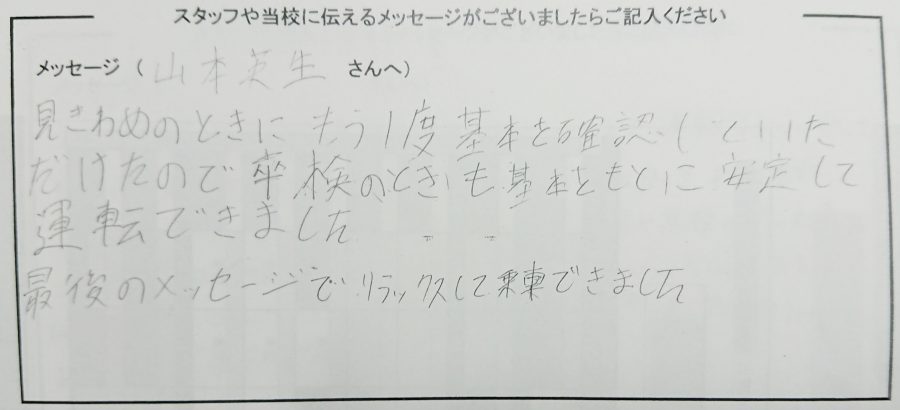 スタッフや当校に伝えるメッセージがございましたらご記入ください
メッセージ ( 山本英生 さんへ)
見きわめのときに もう1度 基本を確認していた
だけたので 卒検のときも基本をもとに 安定して
運転できました
最後のメッセージで リラックスして乗車できました